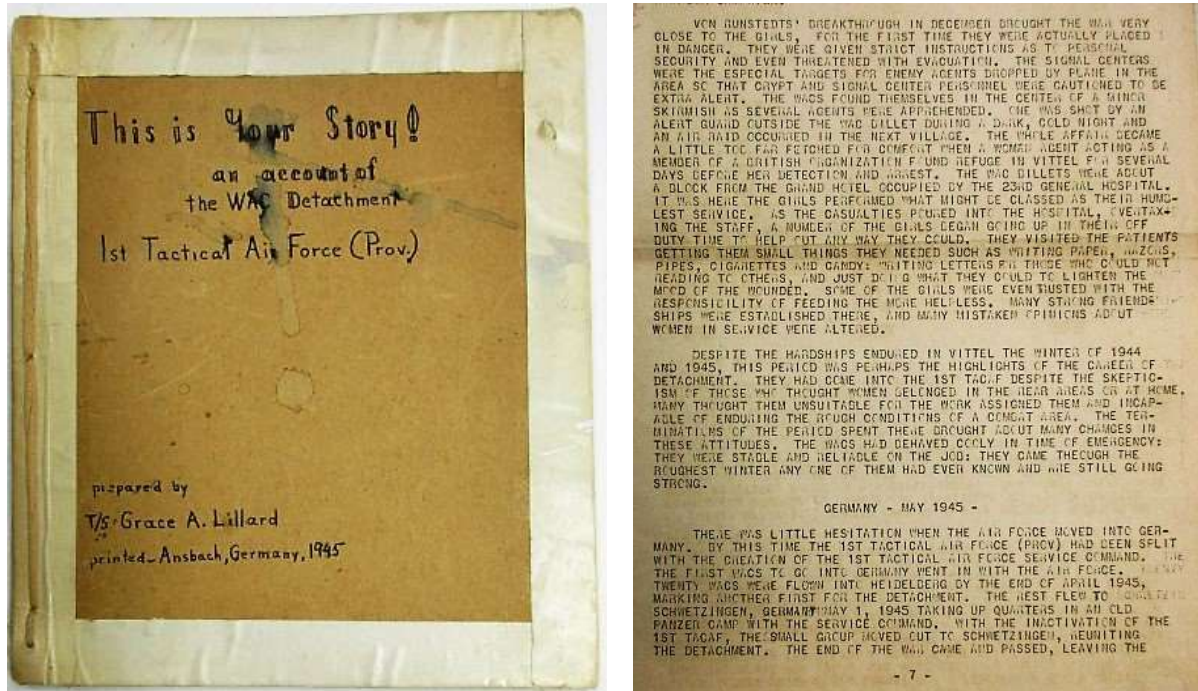 This is Your Story!
an account of
the WAC Detachment
1st Tactical Air Force (Prov.)
prepared by
T/5 Grace A. Lillard
printed-Ansbach, Germany, 1945
VON RUNSTEDTS' BREAKTHROUGH IN DECEMBER BROUGHT THE WAR VERY
CLOSE TO THE GIRLS, FOR THE FIRST TIME THEY WERE ACTUALLY PLACED
IN DANGER. THEY WERE GIVEN STRICT INSTRUCTIONS AS TO PERSONAL
SECURITY AND EVEN THREATENED WITH EVACUATION. THE SIGNAL CENTERS
WERE THE ESPECIAL TARGETS FOR ENEMY AGENTS DROPPED BY PLANE IN THE
AREA SO THAT CRYPT AND SIGNAL CENTER PERSONNEL WERE CAUTIONED TO BE
EXTRA ALERT. THE WACS FOUND THEMSELVES IN THE CENTER OF A MINOR
SKIRMISH AS SEVERAL AGENTS WERE APPREHENDED. ONE WAS SHOT BY AN
ALERT GUARD OUTSIDE THE WAC BILLET DURING A DARK, COLD NIGHT AND
AN AIR RAID OCCURRED IN THE NEXT VILLAGE. THE WHOLE AFFAIR BECAME
A LITTLE TOO FAR FETCHED FOR COMFORT WHEN A WOMAN AGENT ACTING AS A
MEMBER OF A BRITISH ORGANIZATION FOUND REFUGE IN VITTEL FOR SEVERAL
DAYS BEFORE HER DETECTION AND ARREST. THE WAC BILLETS WERE ABOUT
A BLOCK FROM THE GRAND HOTEL OCCUPIED BY THE 23RD GENERAL HOSPITAL.
IT WAS HERE THE GIRLS PERFORMED WHAT MIGHT BE CLASSED AS THEIR HUMB-
LEST SERVICE. AS THE CASUALTIES POURED INTO THE HOSPITAL, OVERTAX-
ING THE STAFF, A NUMBER OF THE GIRLS BEGAN GOING UP IN THEIR OFF
DUTY TIME TO HELP OUT ANY WAY THEY COULD. THEY VISITED THE PATIENTS
GETTING THEM SMALL THINGS THEY NEEDED SUCH AS WRITING PAPER, RAZORS,
PIPES, CIGARETTES AND CANDY: WRITING LETTERS FR THOSE WHO COULD NOT
READING TO OTHERS, AND JUST DOING WHAT THEY COULD TO LIGHTEN THE
MOOD OF THE WOUNDED. SOME OF THE GIRLS WERE EVEN TRUSTED WITH THE
RESPONSIBILITY OF FEEDING THE MORE HELPLESS. MANY STRONG FRIEND-
SHIPS WERE ESTABLISHED THERE, AND MANY MISTAKEN OPINIONS ABOUT
WOMEN IN SERVICE WERE ALTERED.
DESPITE THE HARDSHIPS ENDURED IN VITTEL THE WINTER OF 1944
AND 1945, THIS PERIOD WAS PERHAPS THE HIGHLIGHTS OF THE CAREER OF
DETACHMENT. THEY HAD COME INTO THE 1ST TACAF DESPITE THE SKEPTIC-
ISM OF THOSE WHO THOUGHT WOMEN BELONGED IN THE REAR AREAS OR AT HOME.
MANY THOUGHT THEM UNSUITABLE FOR THE WORK ASSIGNED THEM AND INCAP-
ABLE OF ENDURING THE ROUGH CONDITIONS OF A COMBAT AREA. THE TER-
MINATIONS OF THE PERIOD SPENT THERE BROUGHT ABOUT MANY CHANGES IN
THESE ATTITUDES. THE WACS HAD BEHAVED COOLY IN TIME OF EMERGENCY:
THEY WERE STABLE AND RELIABLE ON THE JOB: THEY CAME THROUGH THE
ROUGHEST WINTER ANY ONE OF THEM HAD EVER KNOWN AND ARE STILL GOING
STRONG.
GERMANY - MAY 1945 -
THERE WAS LITTLE HESITATION WHEN THE AIR FORCE MOVED INTO GER-
MANY. BY THIS TIME THE 1ST TACTICAL AIR FORCE (PROV) HAD BEEN SPLIT
WITH THE CREATION OF THE 1ST TACTICAL AIR FORCE SERVICE COMMAND.
THE FIRST WACS TO GO INTO GERMANY WENT IN WITH THE AIR FORCE.
TWENTY WACS WERE FLOWN INTO HEIDELBERG BY THE END OF APRIL 1945,
MARKING ANOTHER FIRST FOR THE DETACHMENT. THE REST FLEW TO
SCHWETZINGEN, GERMANY MAY 1, 1945 TAKING UP QUARTERS IN AN OLD
PANZER CAMP WITH THE SERVICE COMMAND. WITH THE INACTIVATION OF THE
1ST TACAF, THE SMALL GROUP MOVED OUT TO SCHWETZINGEN, REUNITING
THE DETACHMENT. THE END OF THE WAR CAME AND PASSED, LEAVING THE
- 7 -